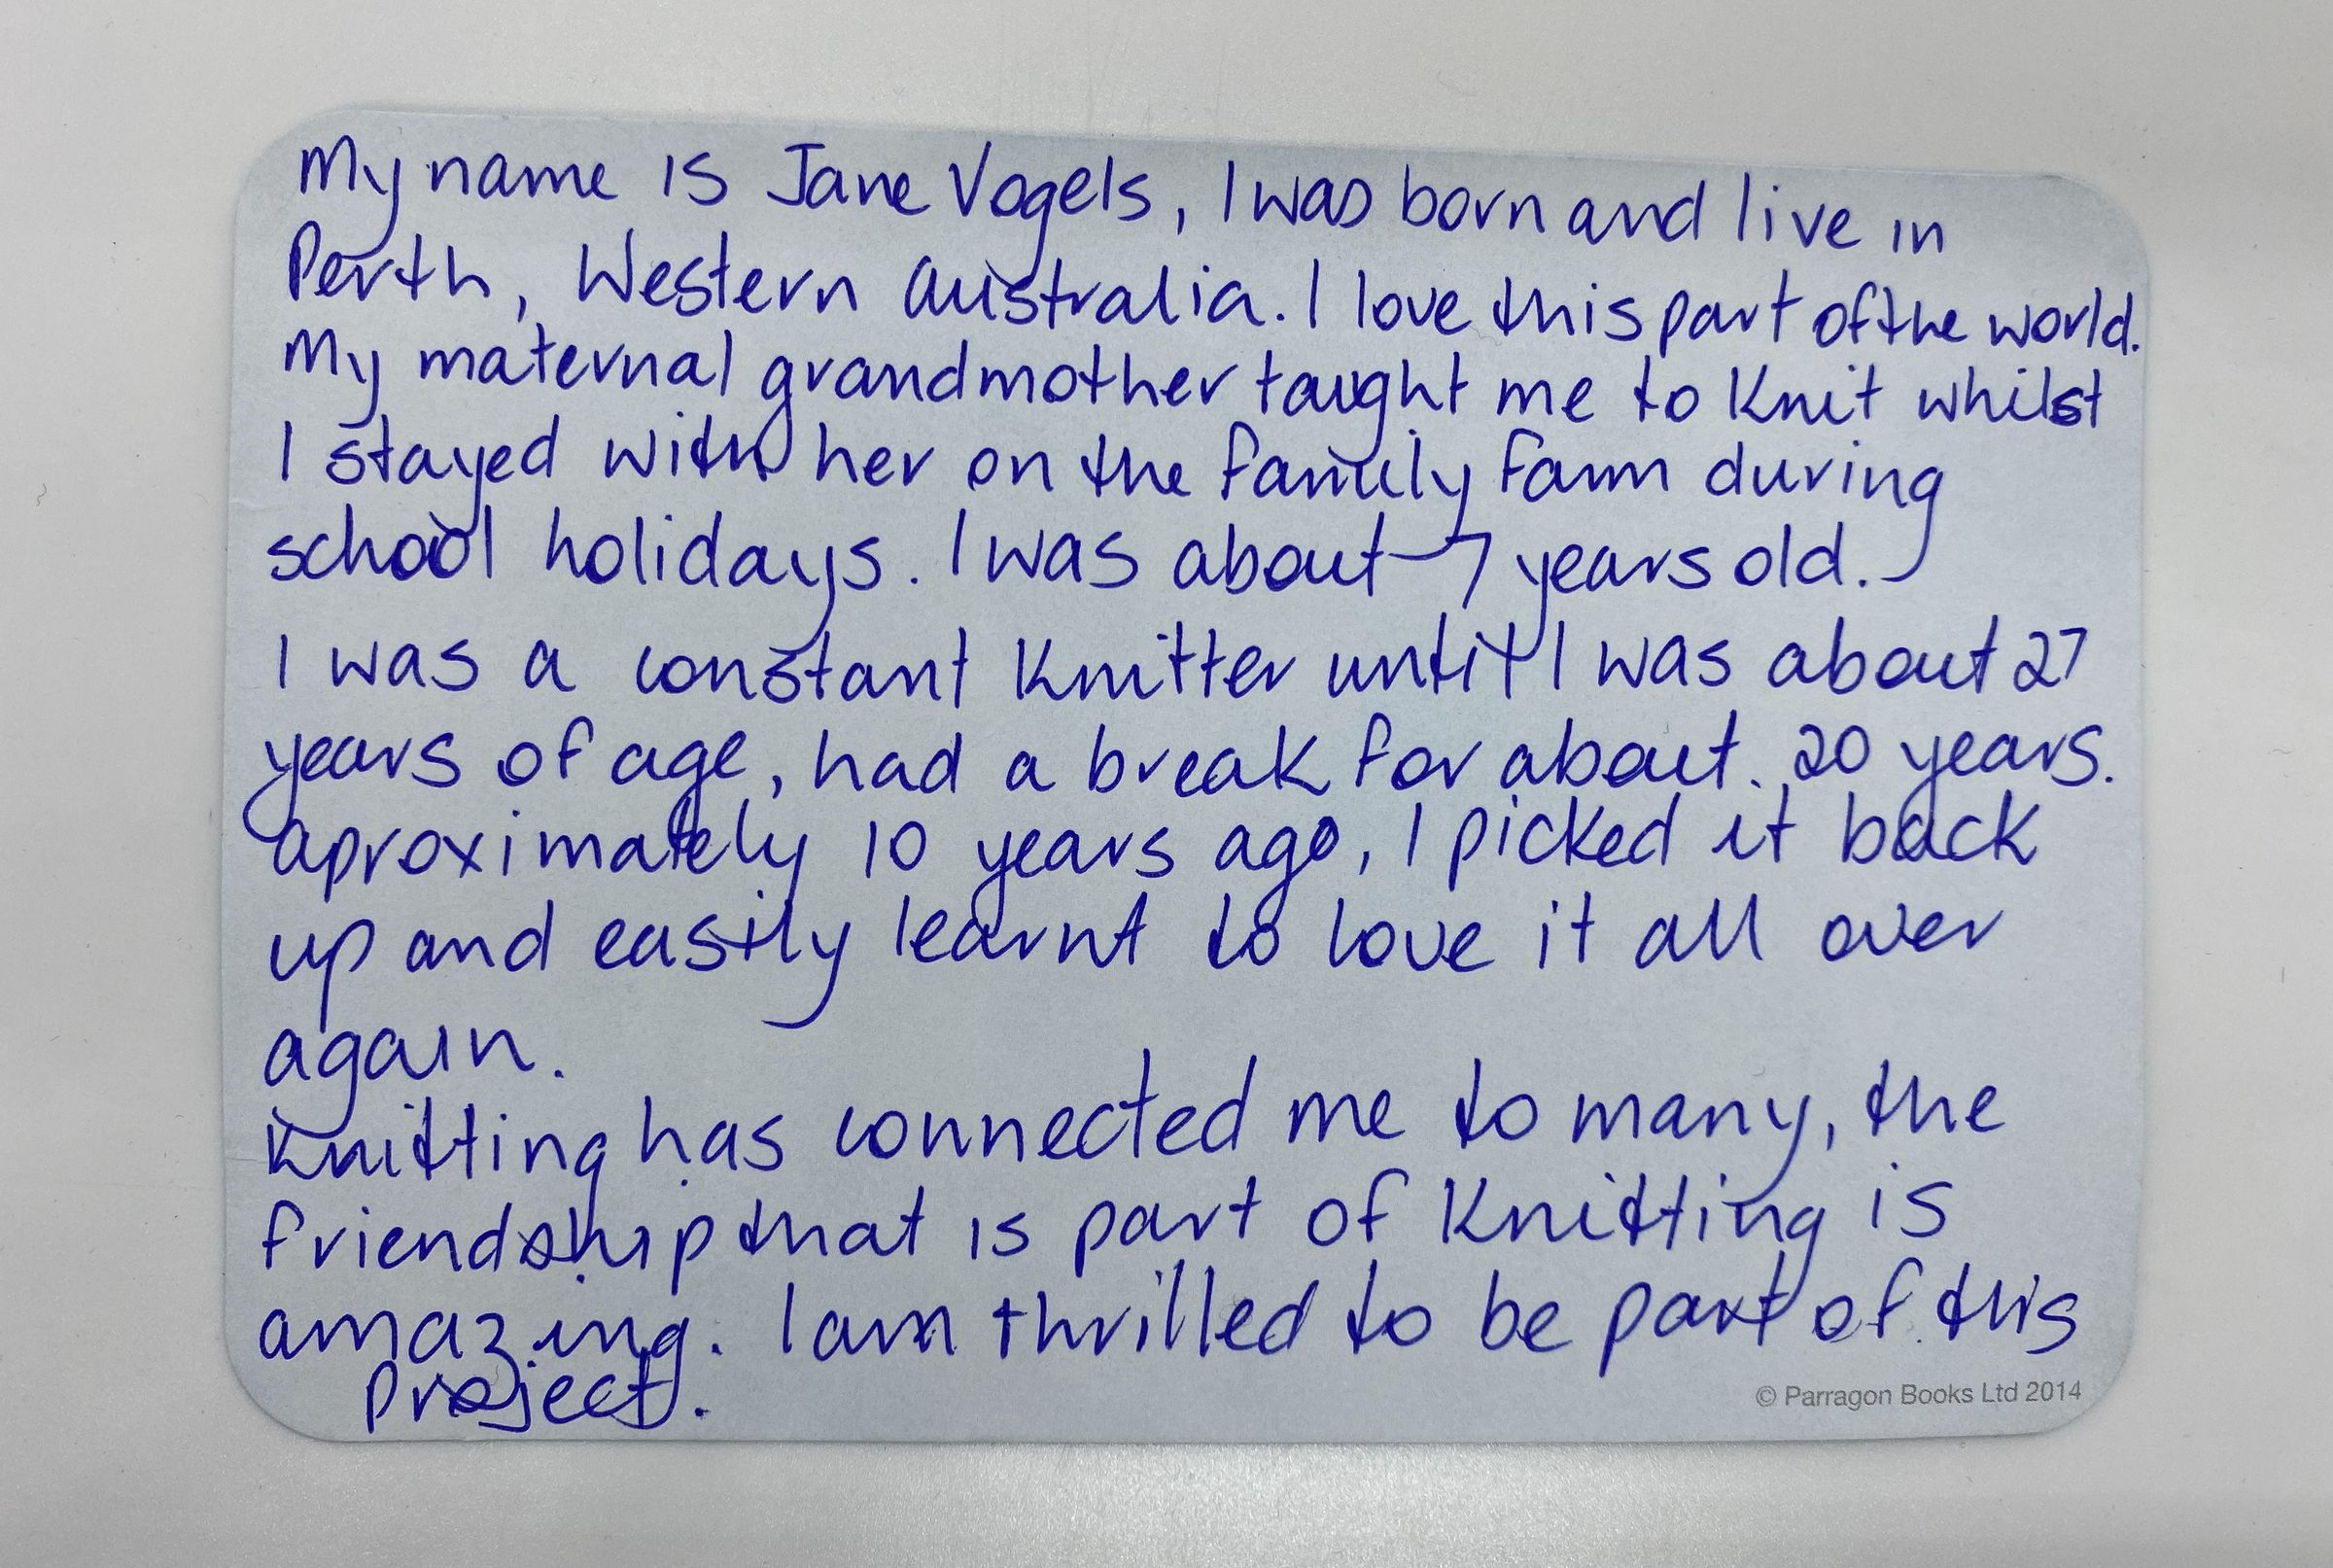 My name is Jane Vogels, I was born and live in
Perth, Western Australia. I love this part of the world.
My maternal grandmother taught me to knit whilst
I stayed with her on the family farm during
school holidays. I was about 7 years old.
I was a constant knitter until I was about 27
years of age, had a break for about. 20 years.
aproximately 10 years ago, I picked it back
up and easily learnt to love it all over
again.
Knitting has connected me to many, the
friendship that is part of knitting is
amazing. I am thrilled to be part of this
project.
© Parragon Books Ltd 2014